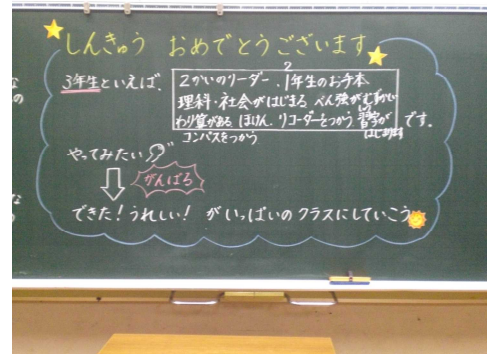 しんきゅう おめでとうございます
3年生といえば、
2かいのリーダー、1年生のお手本
2
理科・社会がはじまる べん強がむずかしい
わり算がある ほけん、リコーダーをつかう 習字が です。
コンパスをつかう はじまる
やってみたい
がんばる
できた!うれしい! がいっぱいのクラスにしていこう